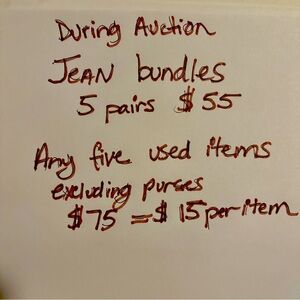 During Auction
JEAN bundles
5 pairs $55
Any five used items
excluding purses
$75 = $15 per item